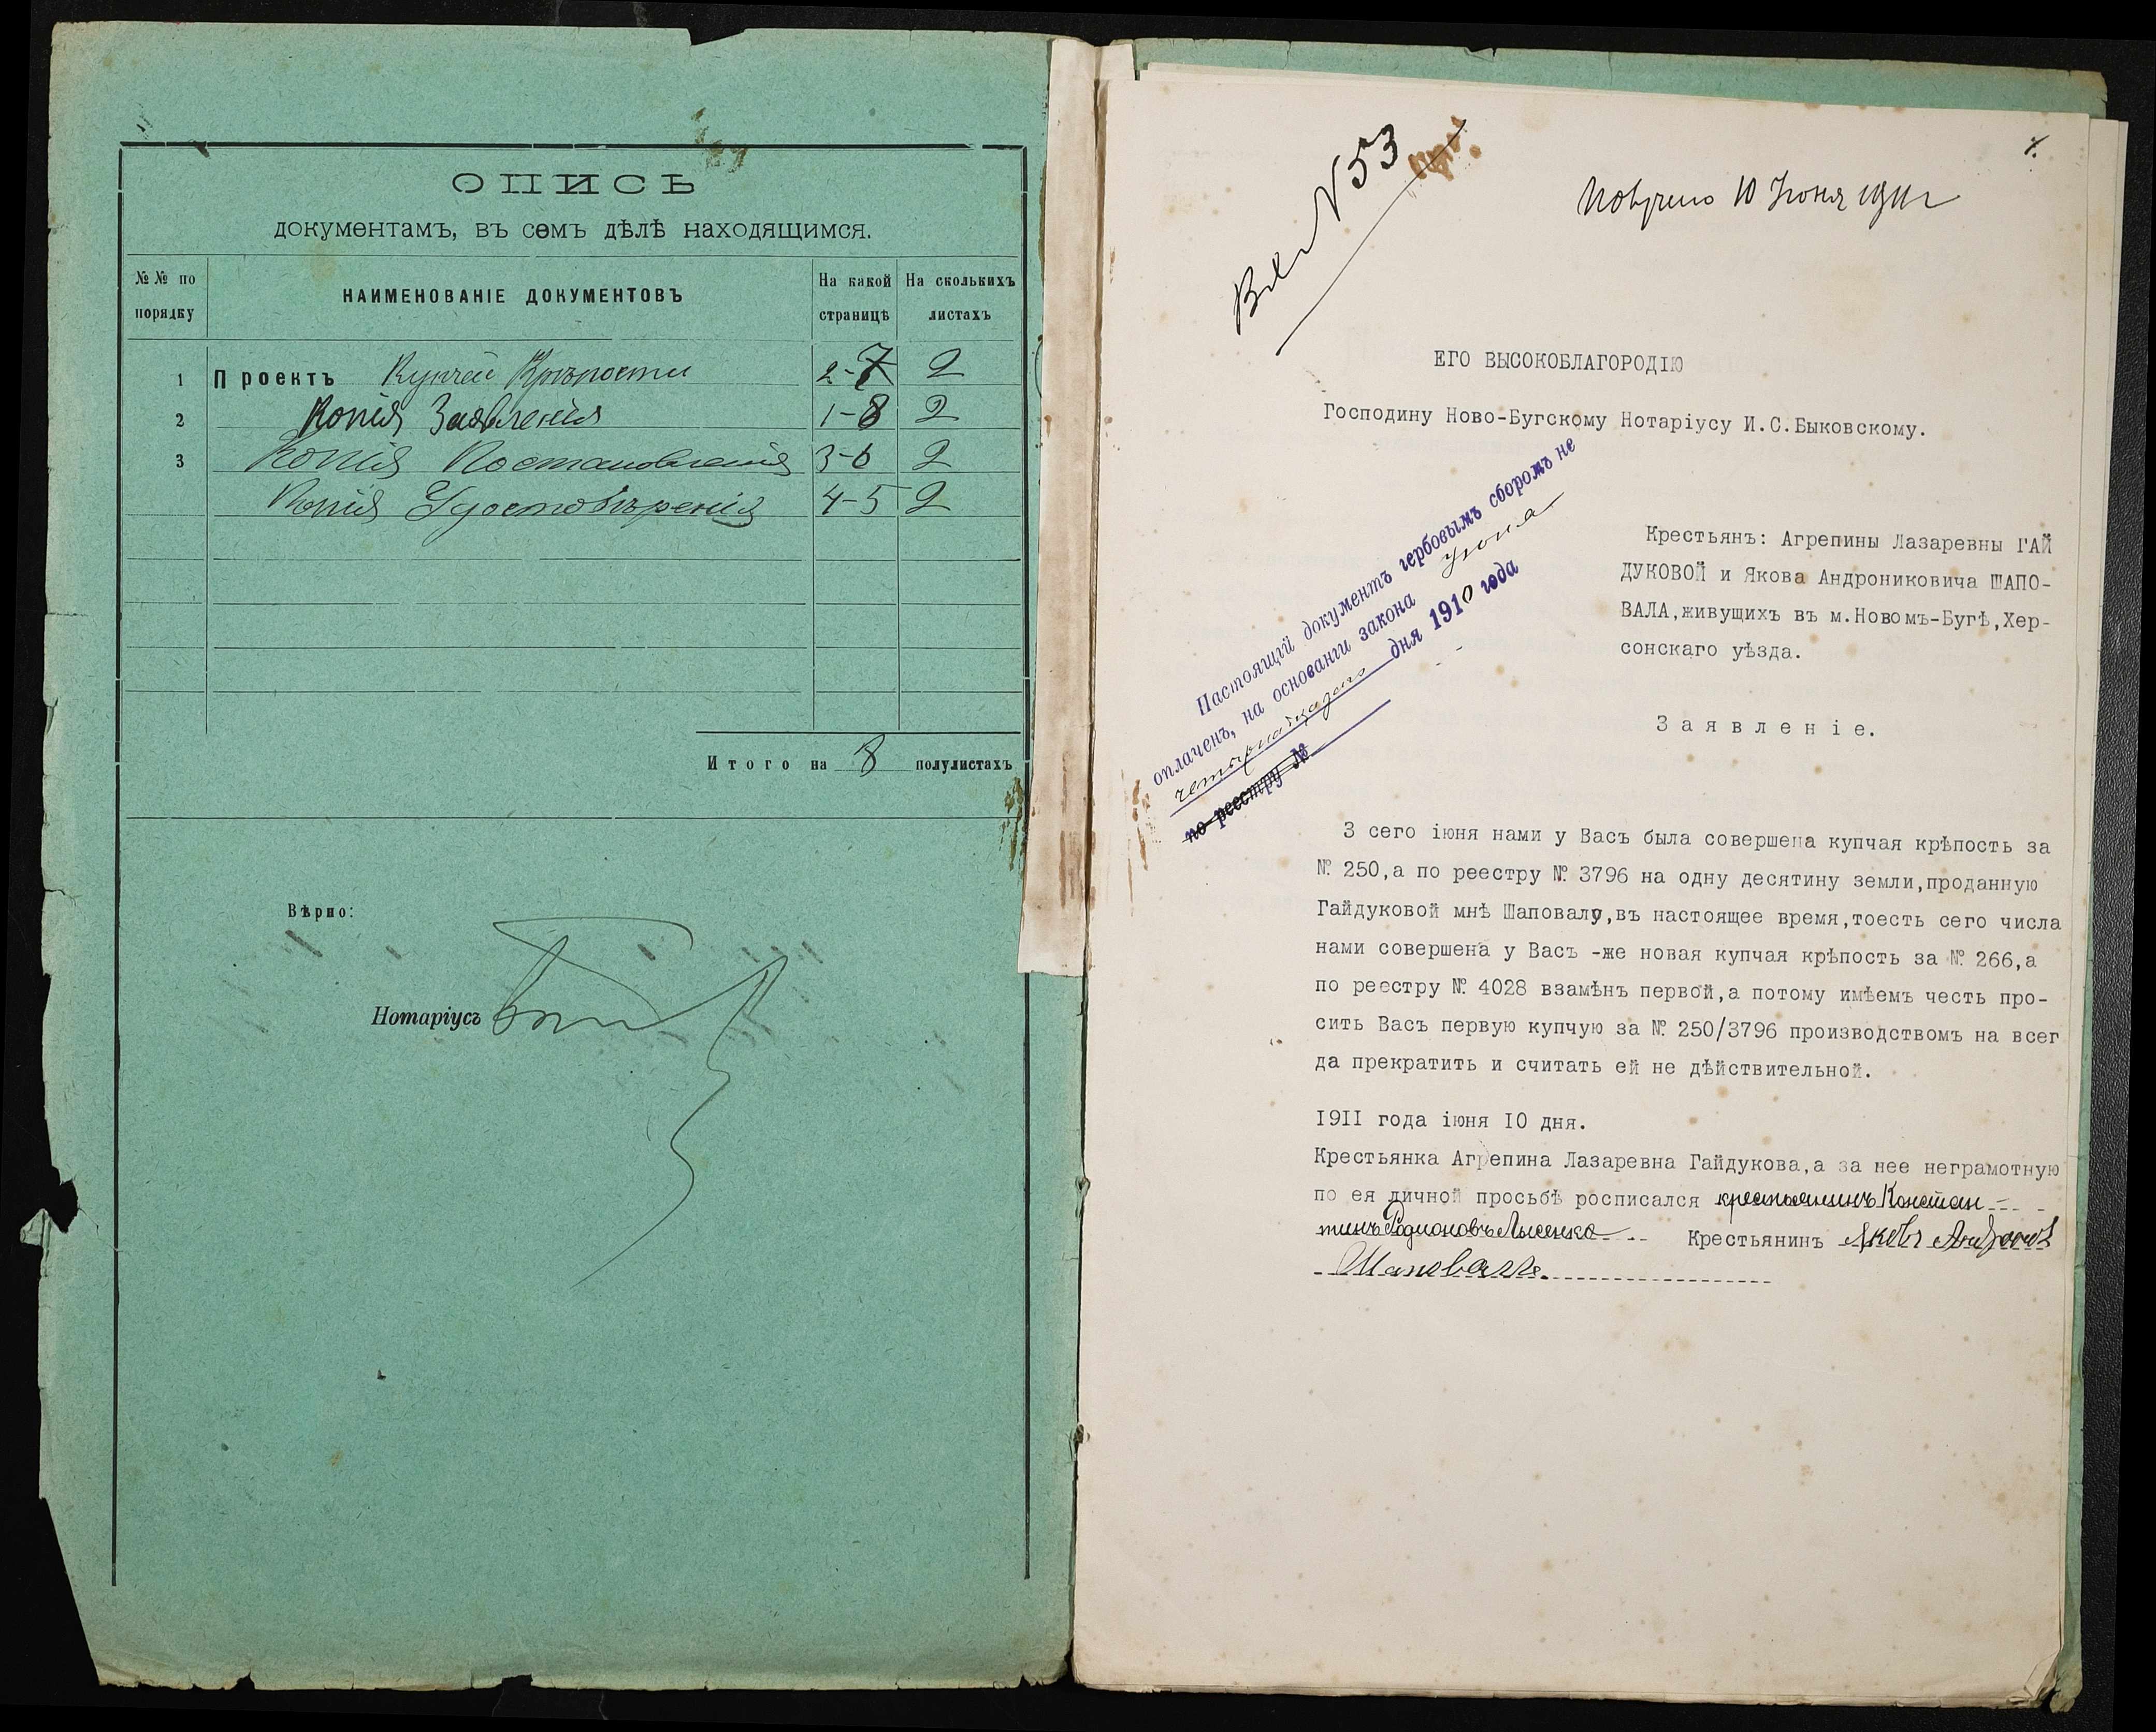 ОПИСЬ
документамъ, въ семъ дѣлѣ находящимся.
№№ по порядку
НАИМЕНОВАНІЕ ДОКУМЕНТОВЪ
На какой страницѣ
На сколькихъ листахъ
1 Проектъ Купчей Крѣпости 2-7 2
2 Копія Заявленія 1-8 2
3 Копія Постановленія 3-6 2
Копія Удостовѣренія 4-5 2
Итого на 8 полулистахъ
Вѣрно:
Нотаріусъ
1.
N 53
Получено 10 Іюня 1911 г
ЕГО ВЫСОКОБЛАГОРОДІЮ
Господину Ново-Бугскому Нотаріусу И.С.Быковскому.
Настоящій документъ гербовымъ сборомъ не
оплаченъ, на основаніи закона іюня
четырнадцатаго дня 1910 года
по реестру №
Крестьянъ: Агрепины Лазаревны ГАЙ
ДУКОВОЙ и Якова Андрониковича ШАПО-
ВАЛА,живущихъ въ м.Новомъ-Бугѣ,Хер-
сонскаго уѣзда.
Заявленіе.
3 сего іюня нами у Васъ была совершена купчая крѣпость за
№ 250,а по реестру № 3796 на одну десятину земли,проданную
Гайдуковой мнѣ Шаповалу,въ настоящее время,тоесть сего числа
нами совершена у Васъ -же новая купчая крѣпость за № 266,а
по реестру № 4028 взамѣнъ первой,а потому имѣемъ честь про-
сить Васъ первую купчую за № 250/3796 производствомъ на всег
да прекратить и считать ей не дѣйствительной.
I9II года іюня I0 дня.
Крестьянка Агрепина Лазаревна Гайдукова,а за нее неграмотную
по ея личной просьбѣ росписался крестьянинъ Констан-
тинъ Родионовъ Лысенко Крестьянинъ Яковъ Андроновъ
Шаповалъ.